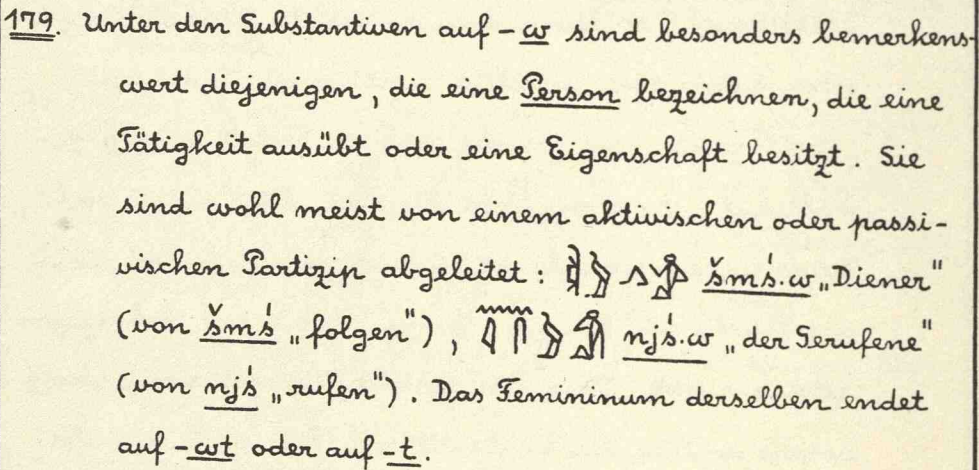 179. Unter den Substantiven auf -w sind besonders bemerkens-
wert diejenigen, die eine Person bezeichnen, die eine
Tätigkeit ausübt oder eine Eigenschaft besitzt. Sie
sind wohl meist von einem aktivischen oder passi-
vischen Partizip abgeleitet: šmś.w „Diener"
(von šmś „folgen"), njś.w „der Gerufene"
(von njś „rufen"). Das Femininum derselben endet
auf -wt oder auf -t.